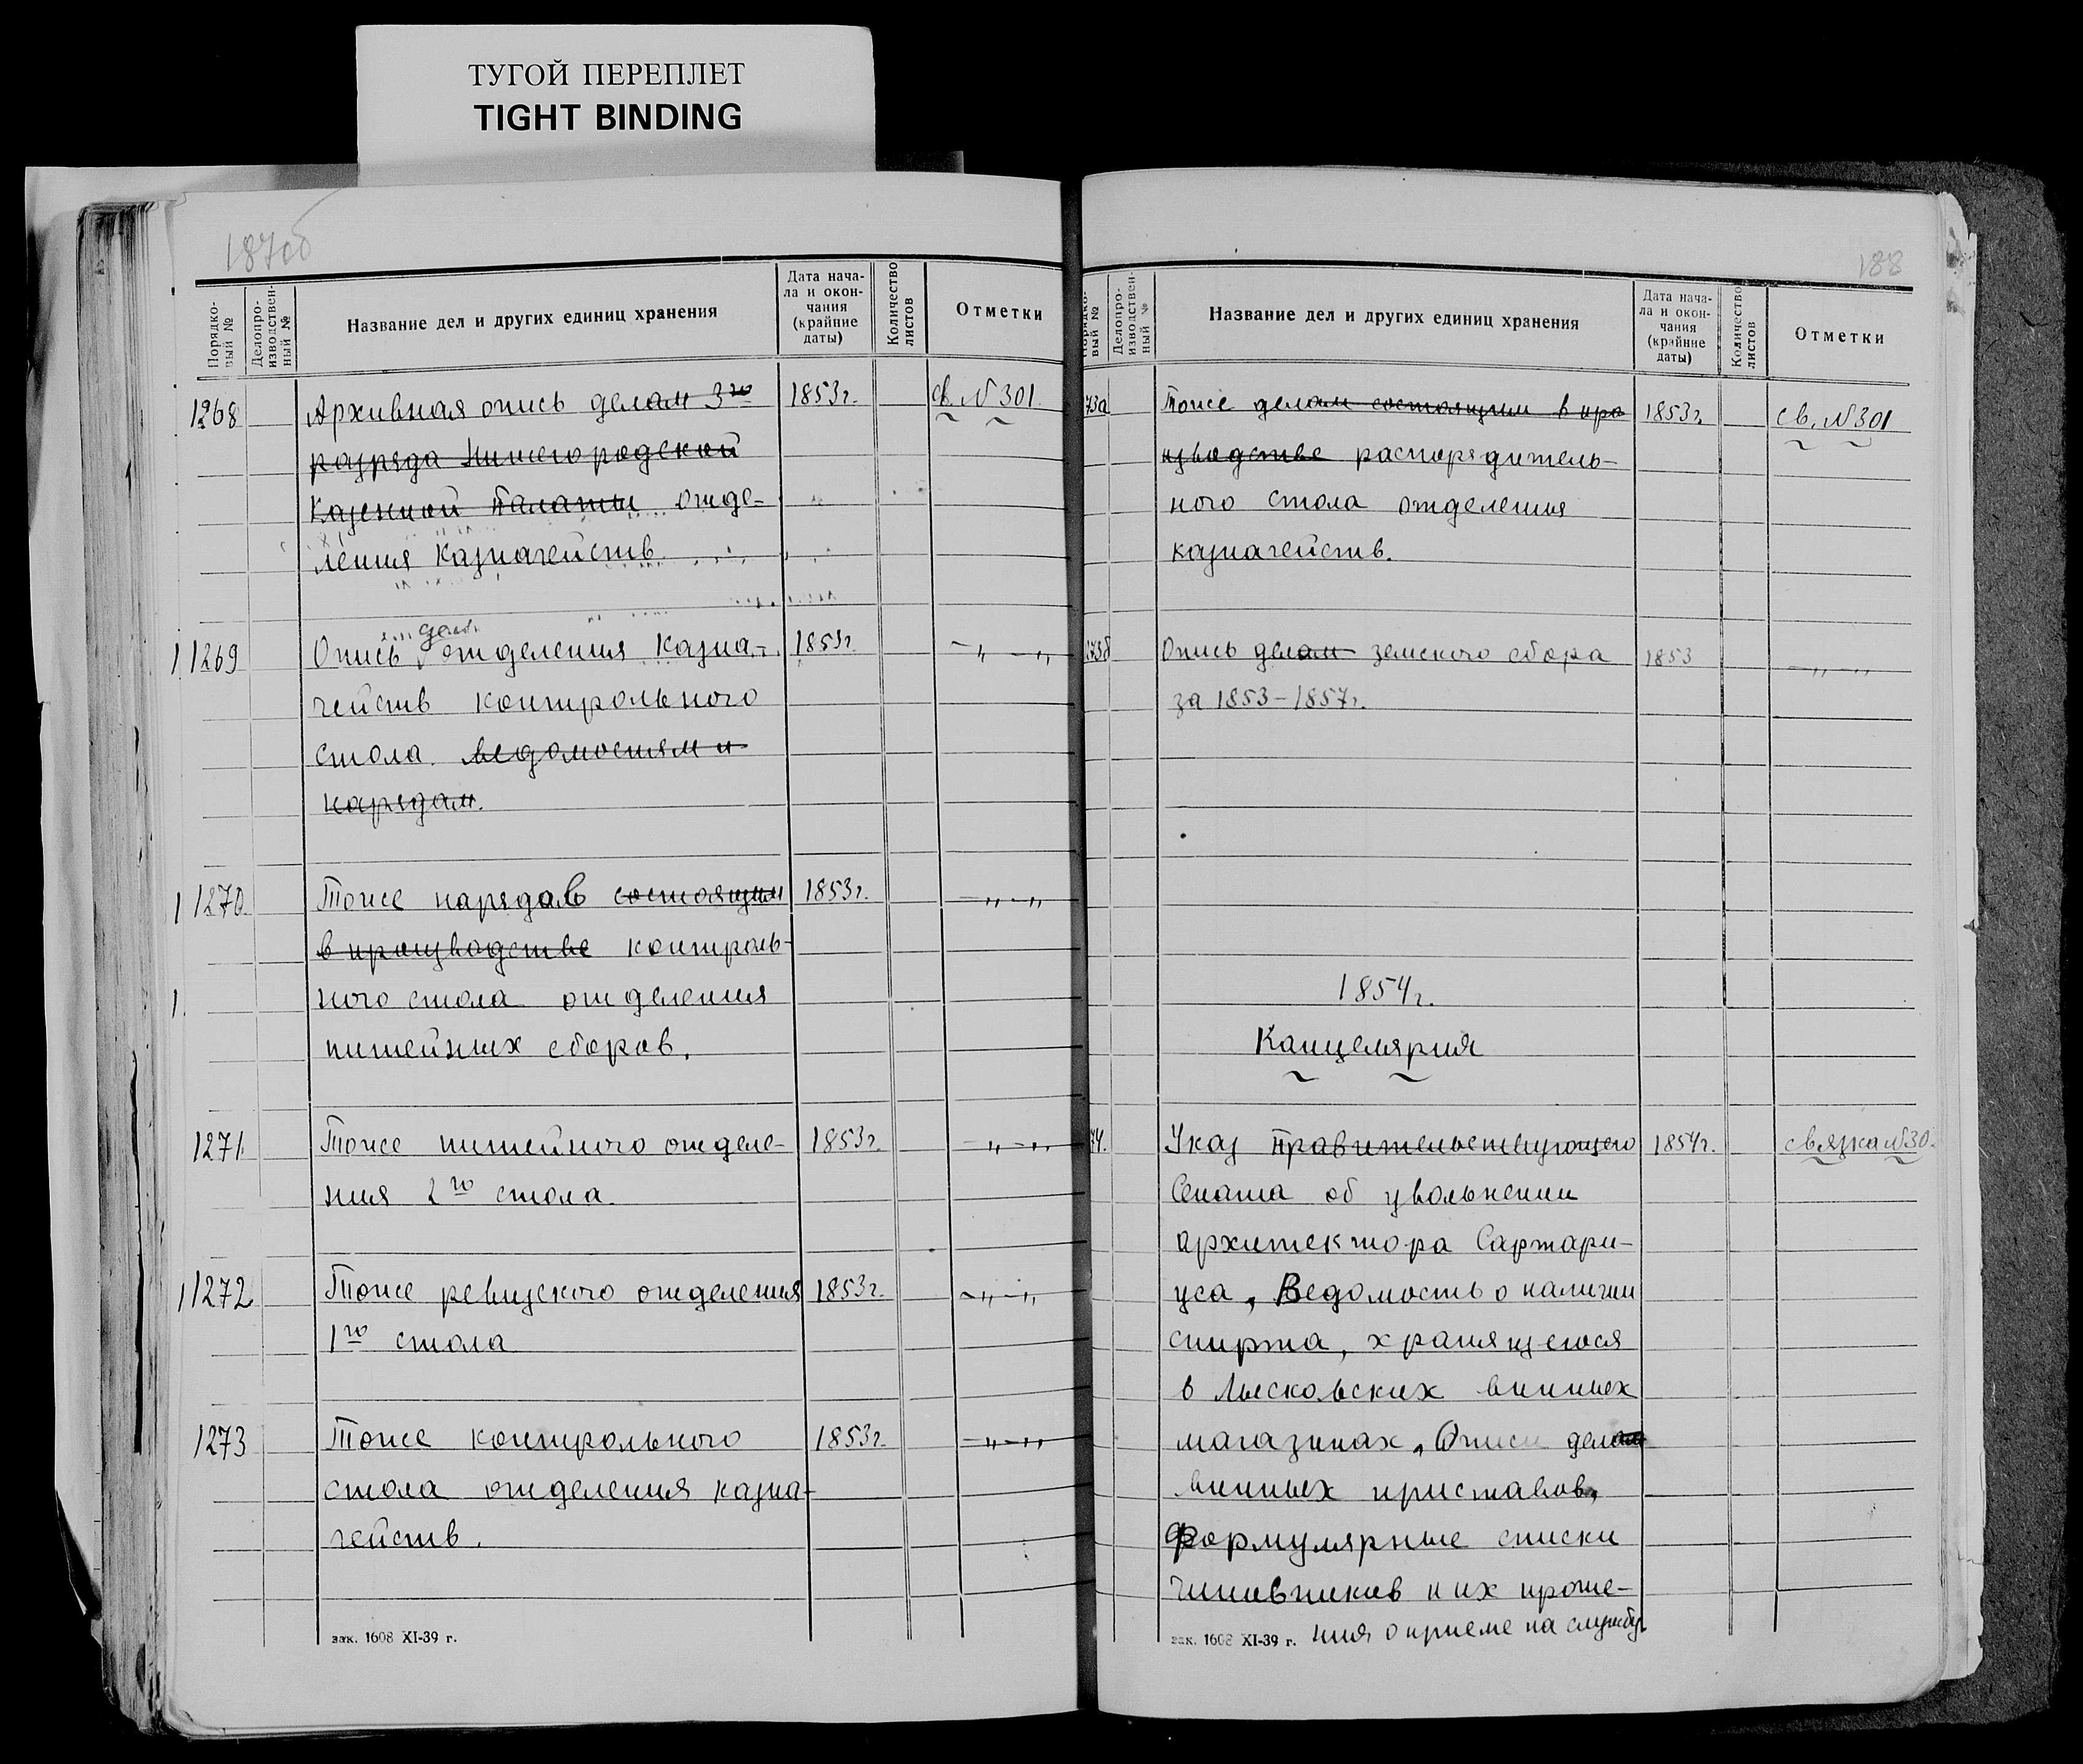 ТУГОЙ ПЕРЕПЛЕТ
TIGHT BINDING
187об
Порядко-
вый №
Делопро-
изводствен-
ный №
Название дел и других единиц хранения
Дата нача-
ла и окон-
чания
(крайние
даты)
Количество
листов
Отметки
1268 Архивная опись делам 3го 1853г. св. № 301.
разряда Нижегородской
Казенной Палаты отде-
ления Казначейств
дел
1269 Опись отделения Казна- 1853г. —„—„
чейств контрольного
стола. ведомостям и
нарядам.
1270 Тоже нарядов состоящим 1853г. —„—„
в производстве контроль-
ного стола отделения
питейных сборов.
1271 Тоже питейного отделе- 1853г. —„—„
ния 2го стола.
1272 Тоже ревизского отделения 1853г. —„—„
1го стола
1273 Тоже контрольного 1853г. —„—„
стола отделения казна-
чейств.
зак. 1608 XI-39 г.
188
Порядко-
вый №
Делопро-
изводствен-
ный №
Название дел и других единиц хранения
Дата нача-
ла и окон-
чания
(крайние
даты)
Количество
листов
Отметки
73а Тоже делам состоящим в про 1853г. св. № 301
изводстве распорядитель-
ного стола отделения
казначейств.
273б Опись делам земского сбора 1853 —„—„
за 1853-1857г.
1854г.
Канцелярия
74. Указ Правительствующего 1854г. связка № 30
Сената об увольнении
архитектора Сартари-
уса, Ведомость о наличии
спирта, хранящегося
в Лысковских винных
магазинах, Описи делам
винных приставов,
Формулярные списки
чиновников и их проше-
ния о приеме на службу.
зак. 1608 XI-39 г.